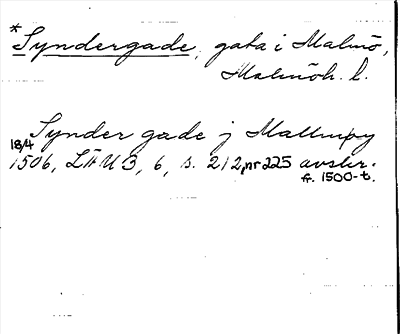 *Syndergade, gata i Malmö,
Malmöh. l.
Synder gade j Mallmøy
18/4 1506, LÄUB, 6, s. 212, nr 225 avskr.
fr. 1500-t.